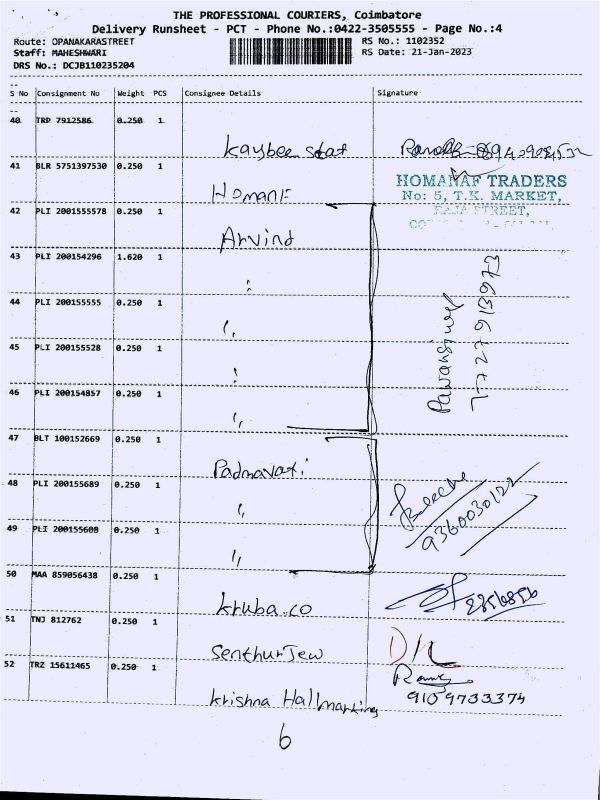 THE PROFESSIONAL COURIERS, Coimbatore
Delivery Runsheet - PCT - Phone No.:0422-3505555 - Page No.:4
Route: OPANAKARASTREET RS No.: 1102352
Staff: MAHESHWARI RS Date: 21-Jan-2023
DRS No.: DCJB110235204
S No Consignment No Weight PCS Consignee Details Signature
40 TRP 7912586 0.250 1
Kaybee stat
41 BLR 5751397530 0.250 1
HOMANAF TRADERS
No: 5, T.K. MARKET,
Homanf
RAJA STREET,
42 PLI 2001555578 0.250 1
Arvind
43 PLI 200154296 1.620 1
44 PLI 200155555 0.250 1
45 PLI 200155528 0.250 1
46 PLI 200154857 0.250 1
7727913973
47 BLT 100152669 0.250 1
Padmavati
48 PLI 200155689 0.250 1
9360030122
49 PLI 200155608 0.250 1
50 MAA 859056438 0.250 1
Kruba.co
51 TNJ 812762 0.250 1
Senthur Jew
D/L
52 TRZ 15611465 0.250 1
Krishna Hallmarking
9109733374
6